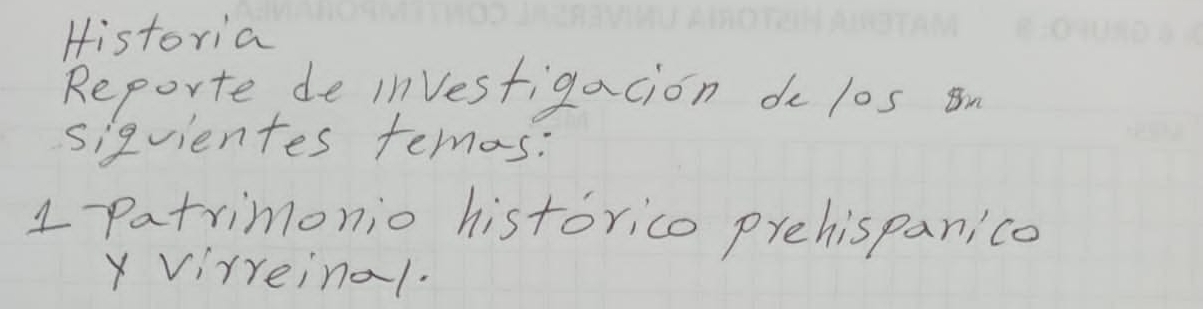 Historia
Reporte de investigación de los
siguientes temas:
1 - Patrimonio histórico prehispanico
y virreinal.